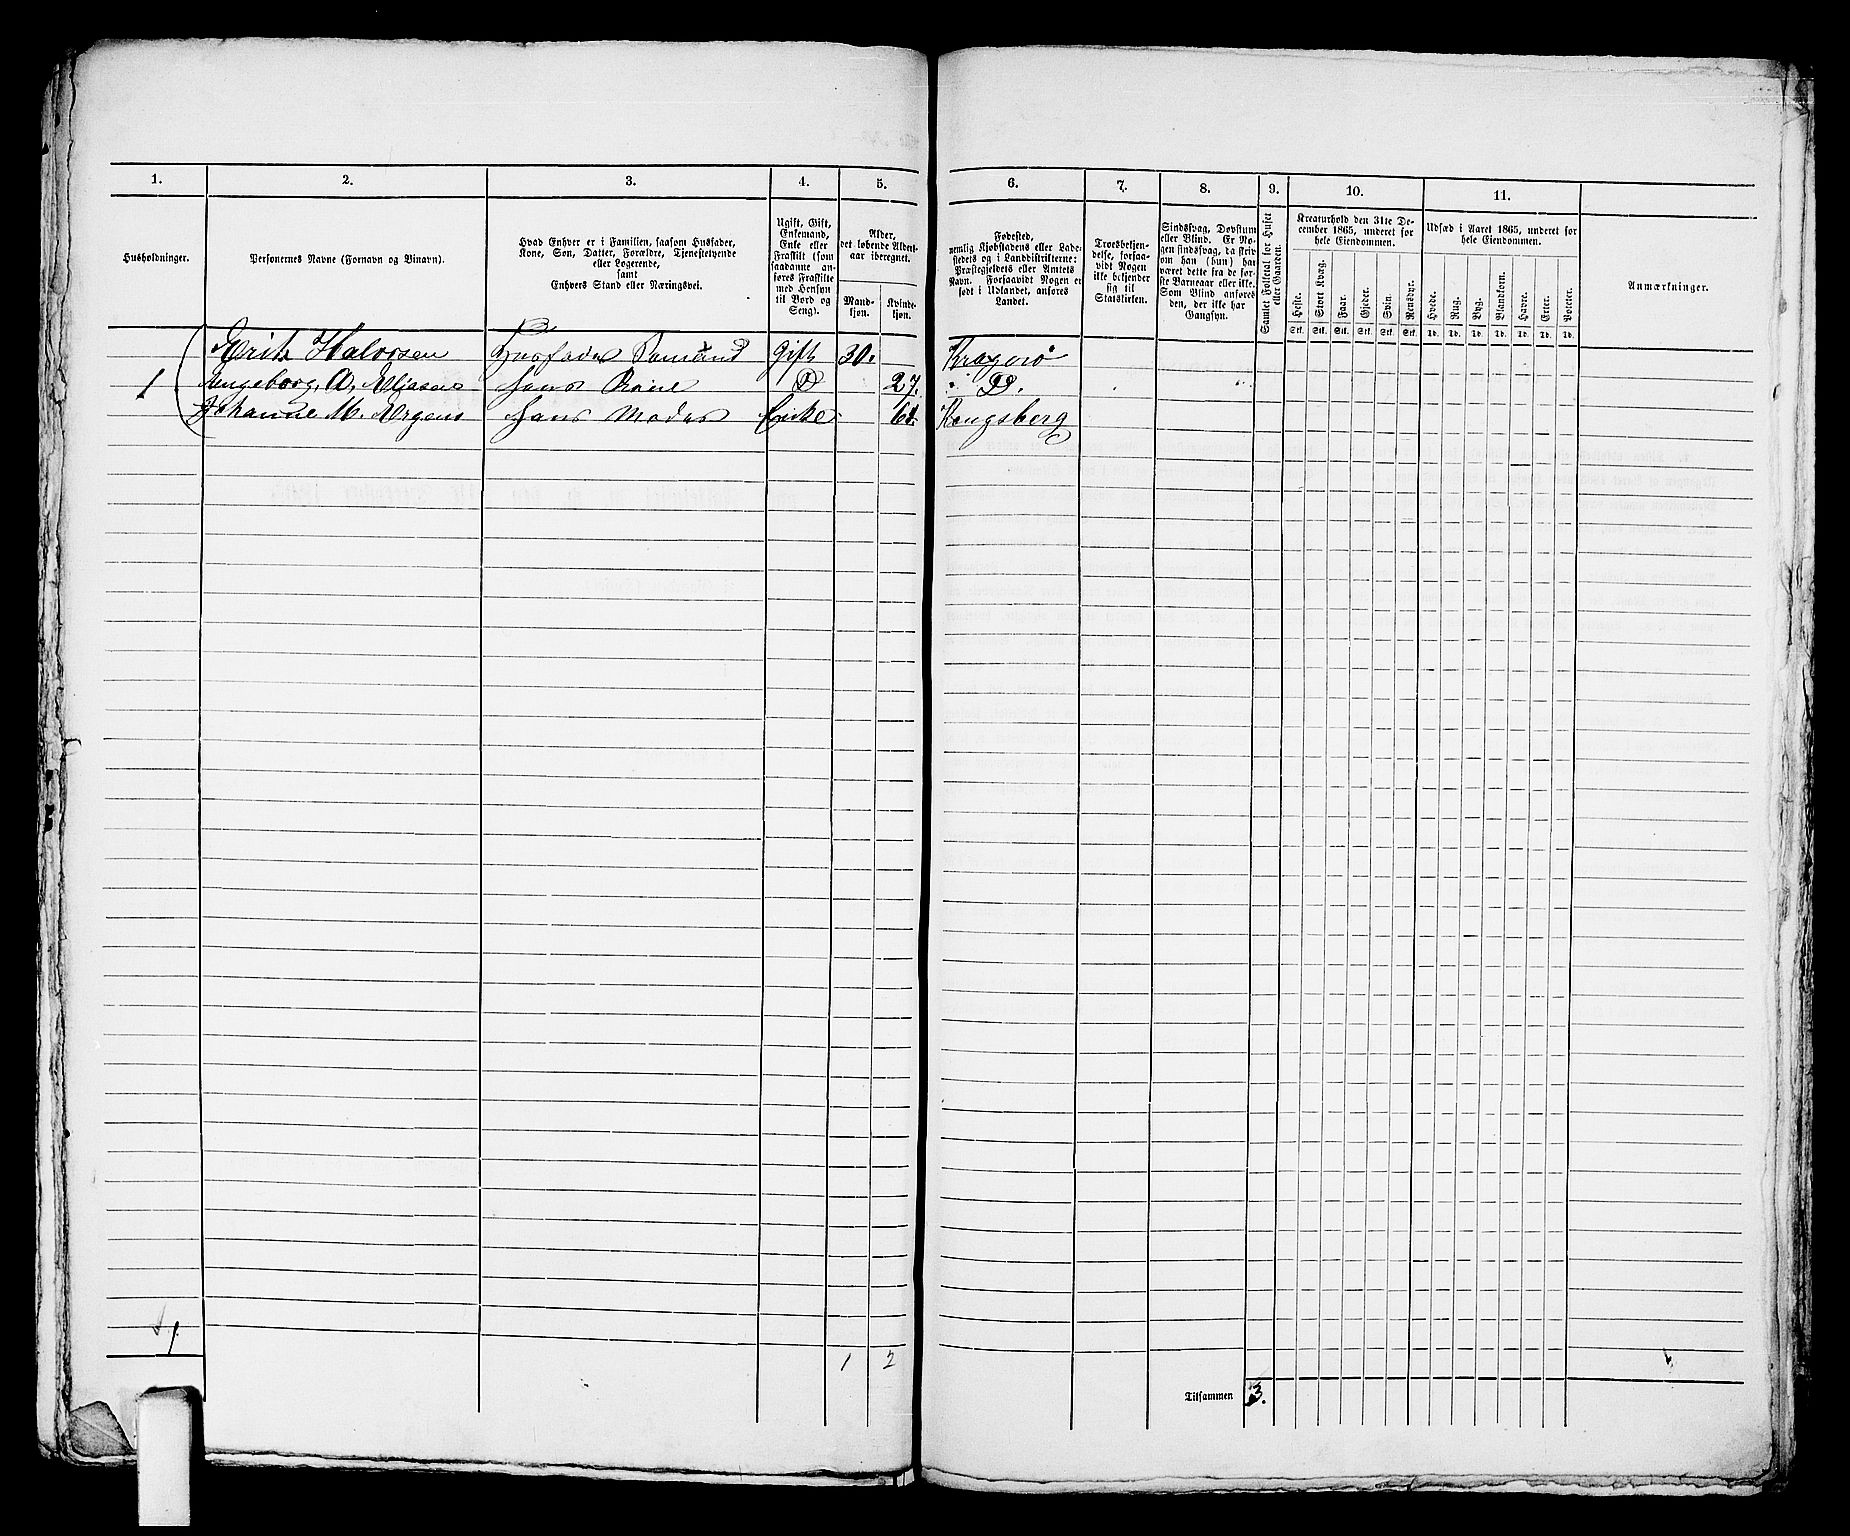 1. 2. 3. 4. 5. 6. 7. 8. 9. 10. 11.
Husholdninger.
Personernes Navne (Fornavn og Binavn).
Hvad Enhver er i Familien, saasom Husfader,
Kone, Søn, Datter, Forældre, Tjenestetyende
eller Logerende,
samt
Enhvers Stand eller Næringsvei.
Ugift, Gift,
Enkemand,
Enke eller
Fraskilt (som
saadanne an-
føres Fraskilte
med Hensyn
til Bord og
Seng).
Alder,
det løbende Alders-
aar iberegnet.
Mand-
kjøn.
Kvinde-
kjøn.
Fødested,
nemlig Kjøbstadens eller Lade-
stedets og i Landdistrikterne:
Præstegjeldets eller Amtets
Navn. Forsaavidt Nogen er
født i Udlandet, anføres
Landet.
Troesbekjen-
delse, forsaa-
vidt Nogen
ikke bekjender
sig til
Statskirken.
Sindssvag, Døvstum
eller Blind. Er No-
gen sindssvag, da skriv
om han (hun) har
været dette fra de før-
ste Barneaar eller ikke.
Som Blind anføres
den, der ikke har
Gangsyn.
Samlet Folketal for Huset
eller Gaarden.
Kreaturhold den 31te De-
cember 1865, underet for
hele Eiendommen.
Heste. Stort Kvæg. Faar. Gjeder. Svin. Rensdyr.
Stk. Stk. Stk. Stk. Stk. Stk.
Udsæd i Aaret 1865, underet for
hele Eiendommen.
Hvede. Rug. Byg. Blandkorn. Havre. Erter. Poteter.
Td. Td. Td. Td. Td. Td. Td.
Anmærkninger.
Erik Halvorsen Husfader Sømand Gift 30. Kragerø
1 Ingeborg A. Eliasen hans Kone D 27. " D.
Johanne M. hans Moder Enke Kongsberg
1.
1 2
Tilsammen 3.